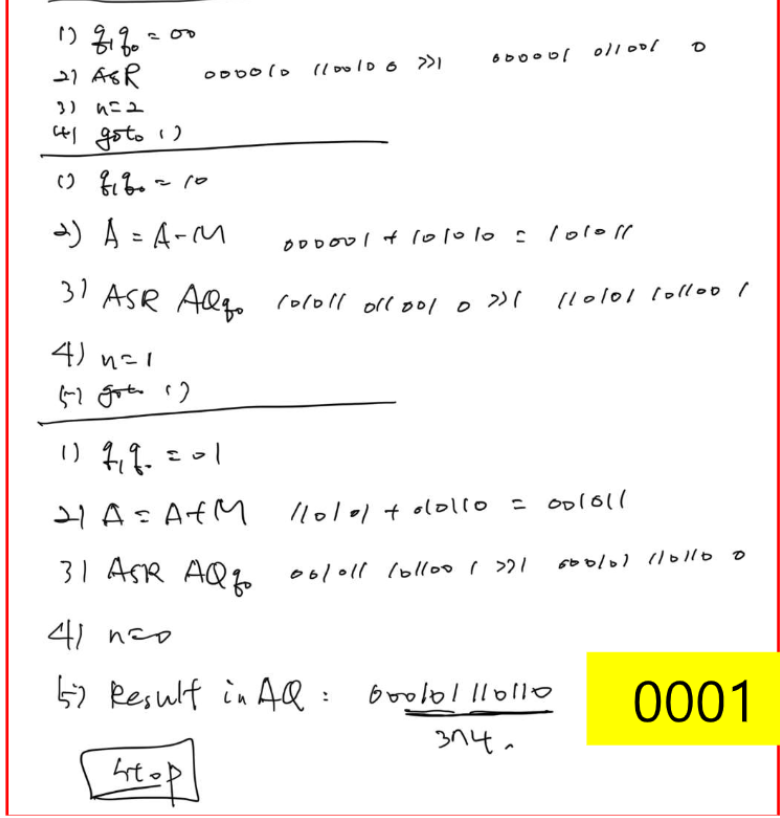 1) q₁q₀ = 00
2) ASR 000010 110010 0 >>1 000001 011001 0
3) n=2
4) goto 1)
1) q₁q₀ = 10
2) A = A-M 000001 + 101010 = 101011
3) ASR AQq₀ 101011 011001 0 >>1 110101 101100 1
4) n=1
5) goto 1)
1) q₁q₀ = 01
2) A = A+M 110101 + 010110 = 001011
3) ASR AQq₀ 001011 101100 1 >>1 000101 110110 0
4) n=0
5) Result in AQ : 000101110110
374.
0001
Stop